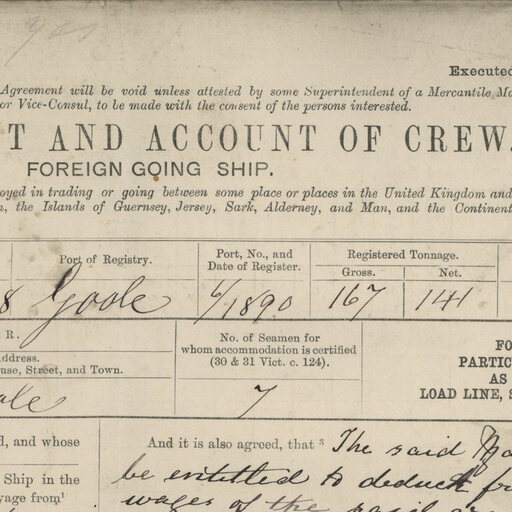 yes
Executed
Agreement will be void unless attested by some Superintendent of a Mercantile Ma
or Vice-Consul, to be made with the consent of the persons interested.
T AND ACCOUNT OF CREW.
FOREIGN GOING SHIP.
oyed in trading or going between some place or places in the United Kingdom and
n, the Islands of Guernsey, Jersey, Sark, Alderney, and Man, and the Continent
Port of Registry.
Port, No., and
Date of Register.
Registered Tonnage.
Gross.
Net.
8
Goole
6/1890
167
141
R.
ddress.
use, Street, and Town.
ole
No. of Seamen for
whom accommodation is certified
(30 & 31 Vict. c. 124).
7
FO
PARTIC
AS
LOAD LINE, S
d, and whose
Ship in the
yage from¹
And it is also agreed, that ³ The said Ma
be entitled to deduct fr
wages of the said